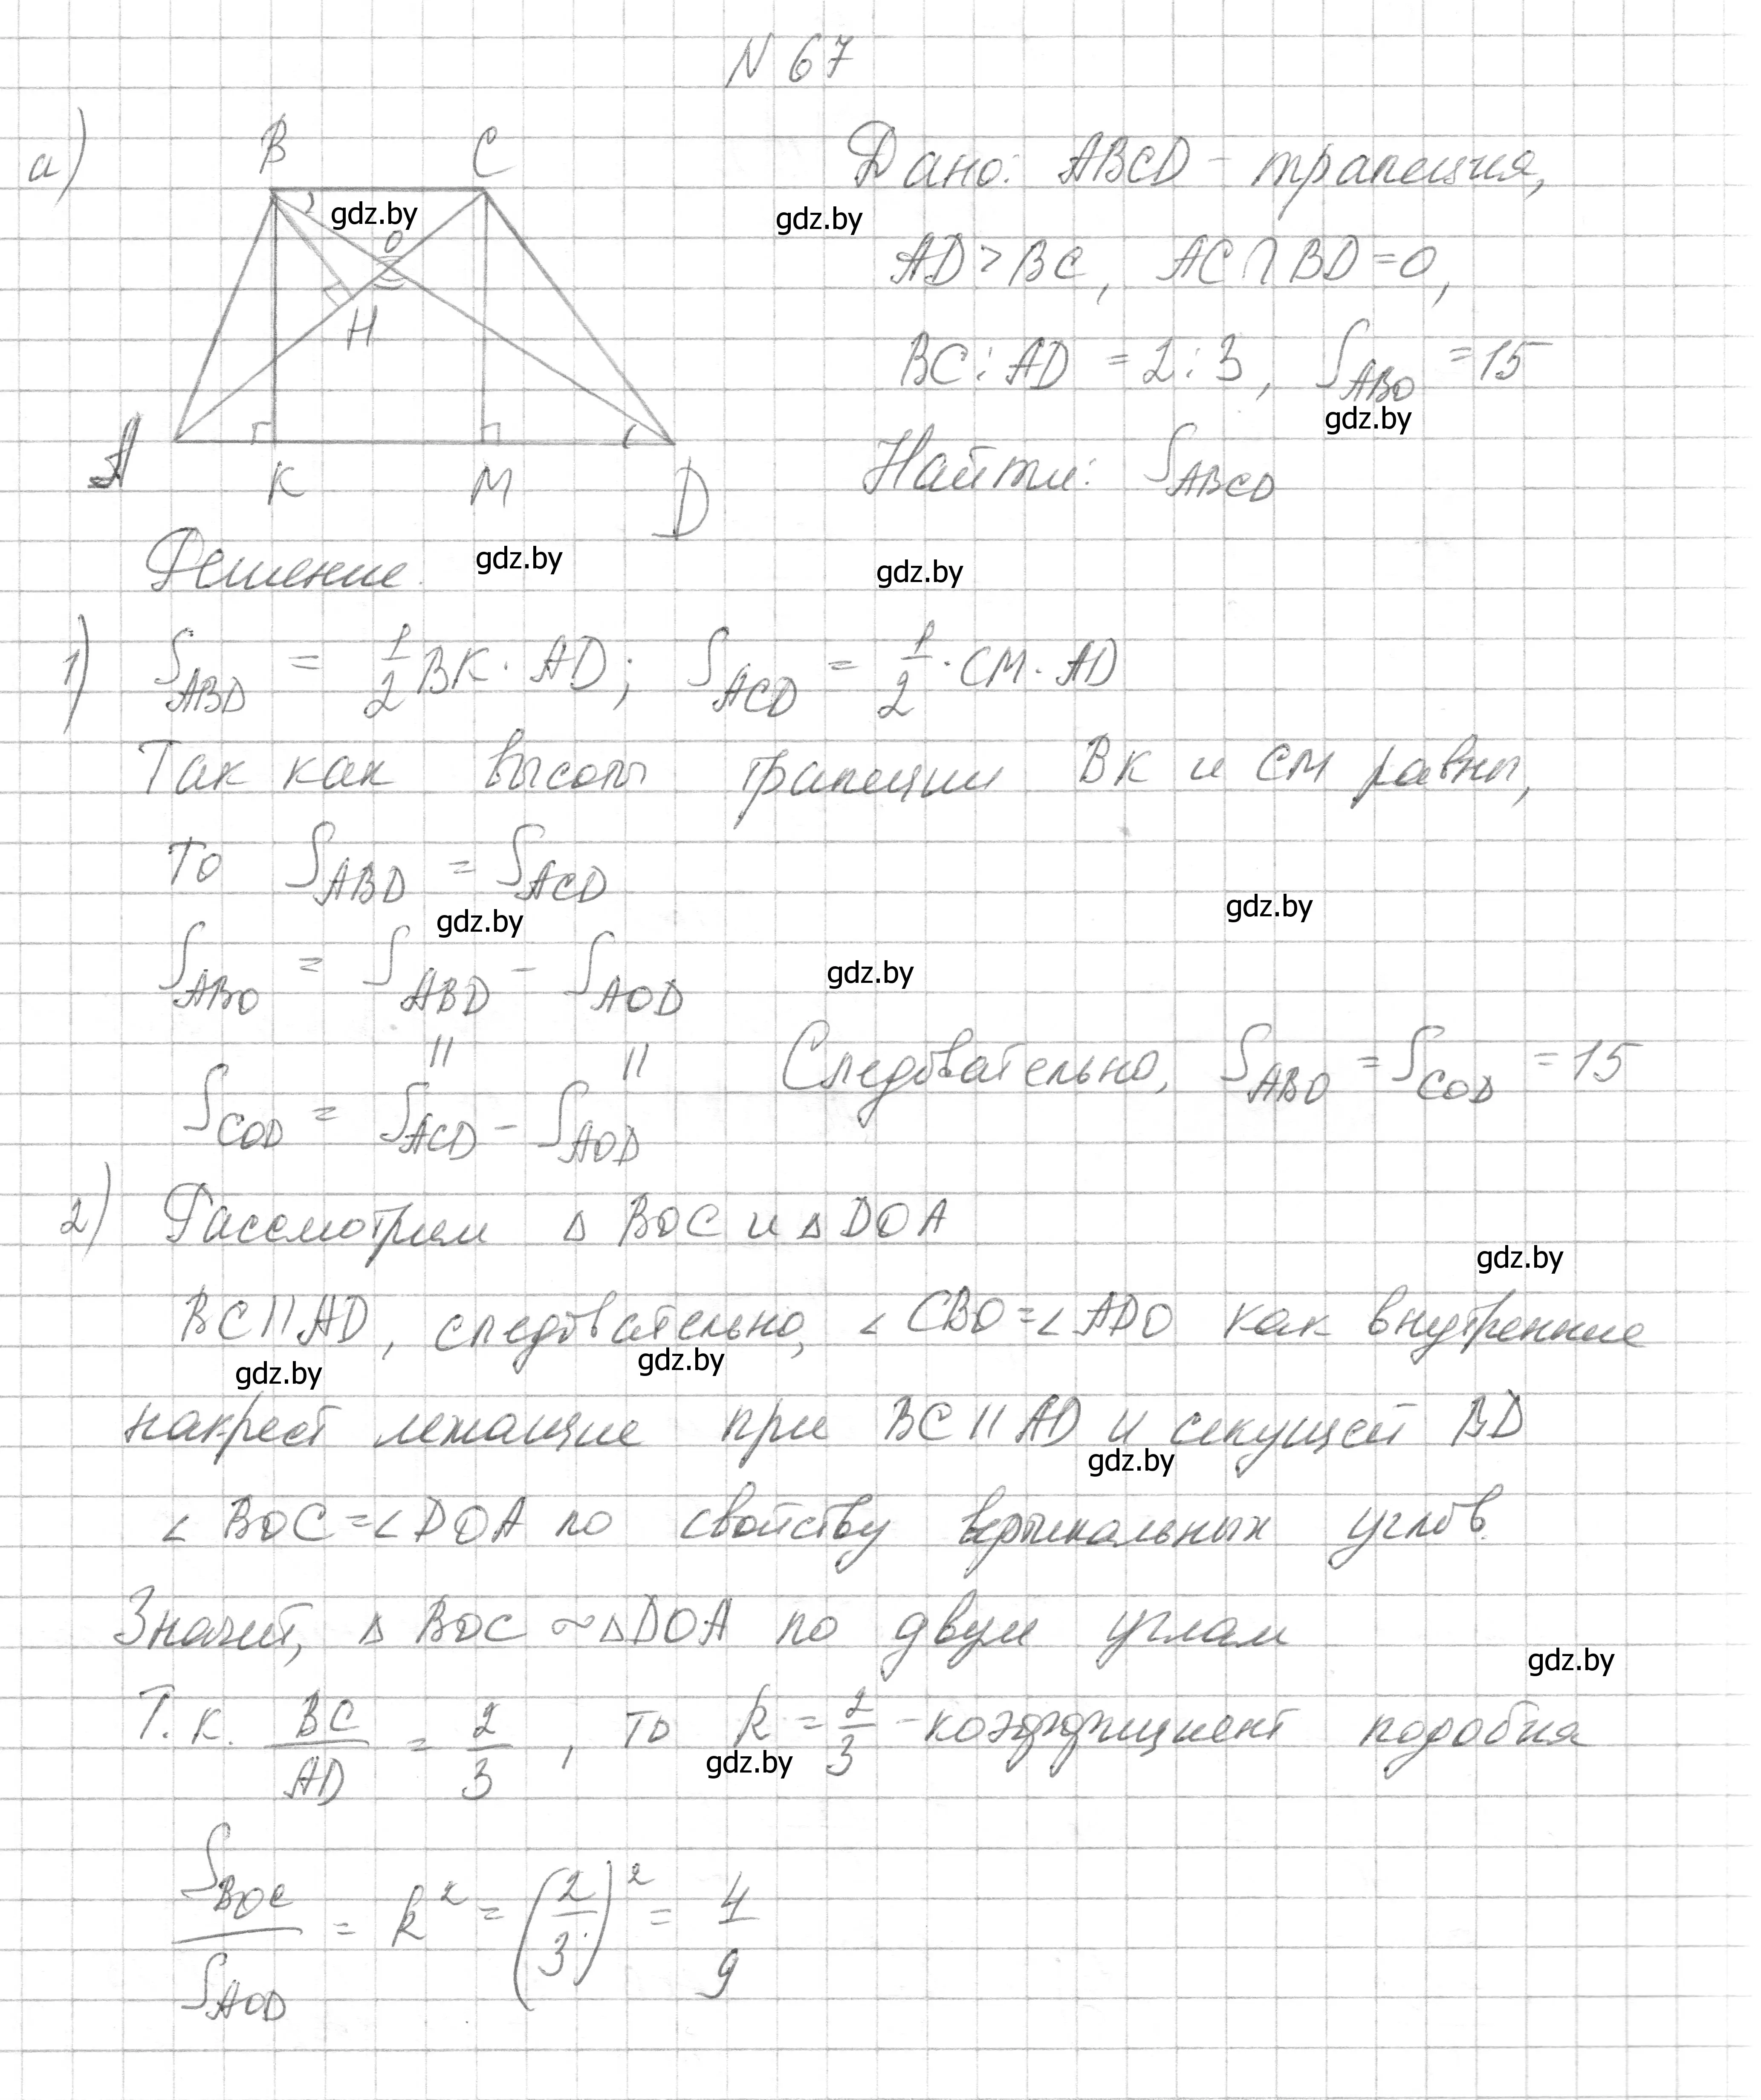 N 67
а)
B C
gdz.by
O
H
A K M D
Дано: ABCD - трапеция,
gdz.by
AD > BC, AC ∩ BD = O,
BC : AD = 2 : 3, S_ABO = 15
gdz.by
Найти: S_ABCD
Решение.
gdz.by gdz.by
1) S_ABD = 1/2 BK · AD; S_ACD = 1/2 · CM · AD
Так как высоты трапеции BK и CM равны,
то S_ABD = S_ACD
gdz.by gdz.by
S_ABO = S_ABD - S_AOD
gdz.by
|| ||
S_COD = S_ACD - S_AOD
Следовательно, S_ABO = S_COD = 15
2) Рассмотрим Δ BOC и Δ DOA
gdz.by
BC || AD, следовательно, ∠ CBO = ∠ ADO как внутренние
gdz.by gdz.by
накрест лежащие при BC || AD и секущей BD
gdz.by
∠ BOC = ∠ DOA по свойству вертикальных углов.
Значит, Δ BOC ~ Δ DOA по двум углам
gdz.by
Т.к. BC/AD = 2/3, то k = 2/3 - коэффициент подобия
gdz.by
S_BOC/S_AOD = k² = (2/3)² = 4/9